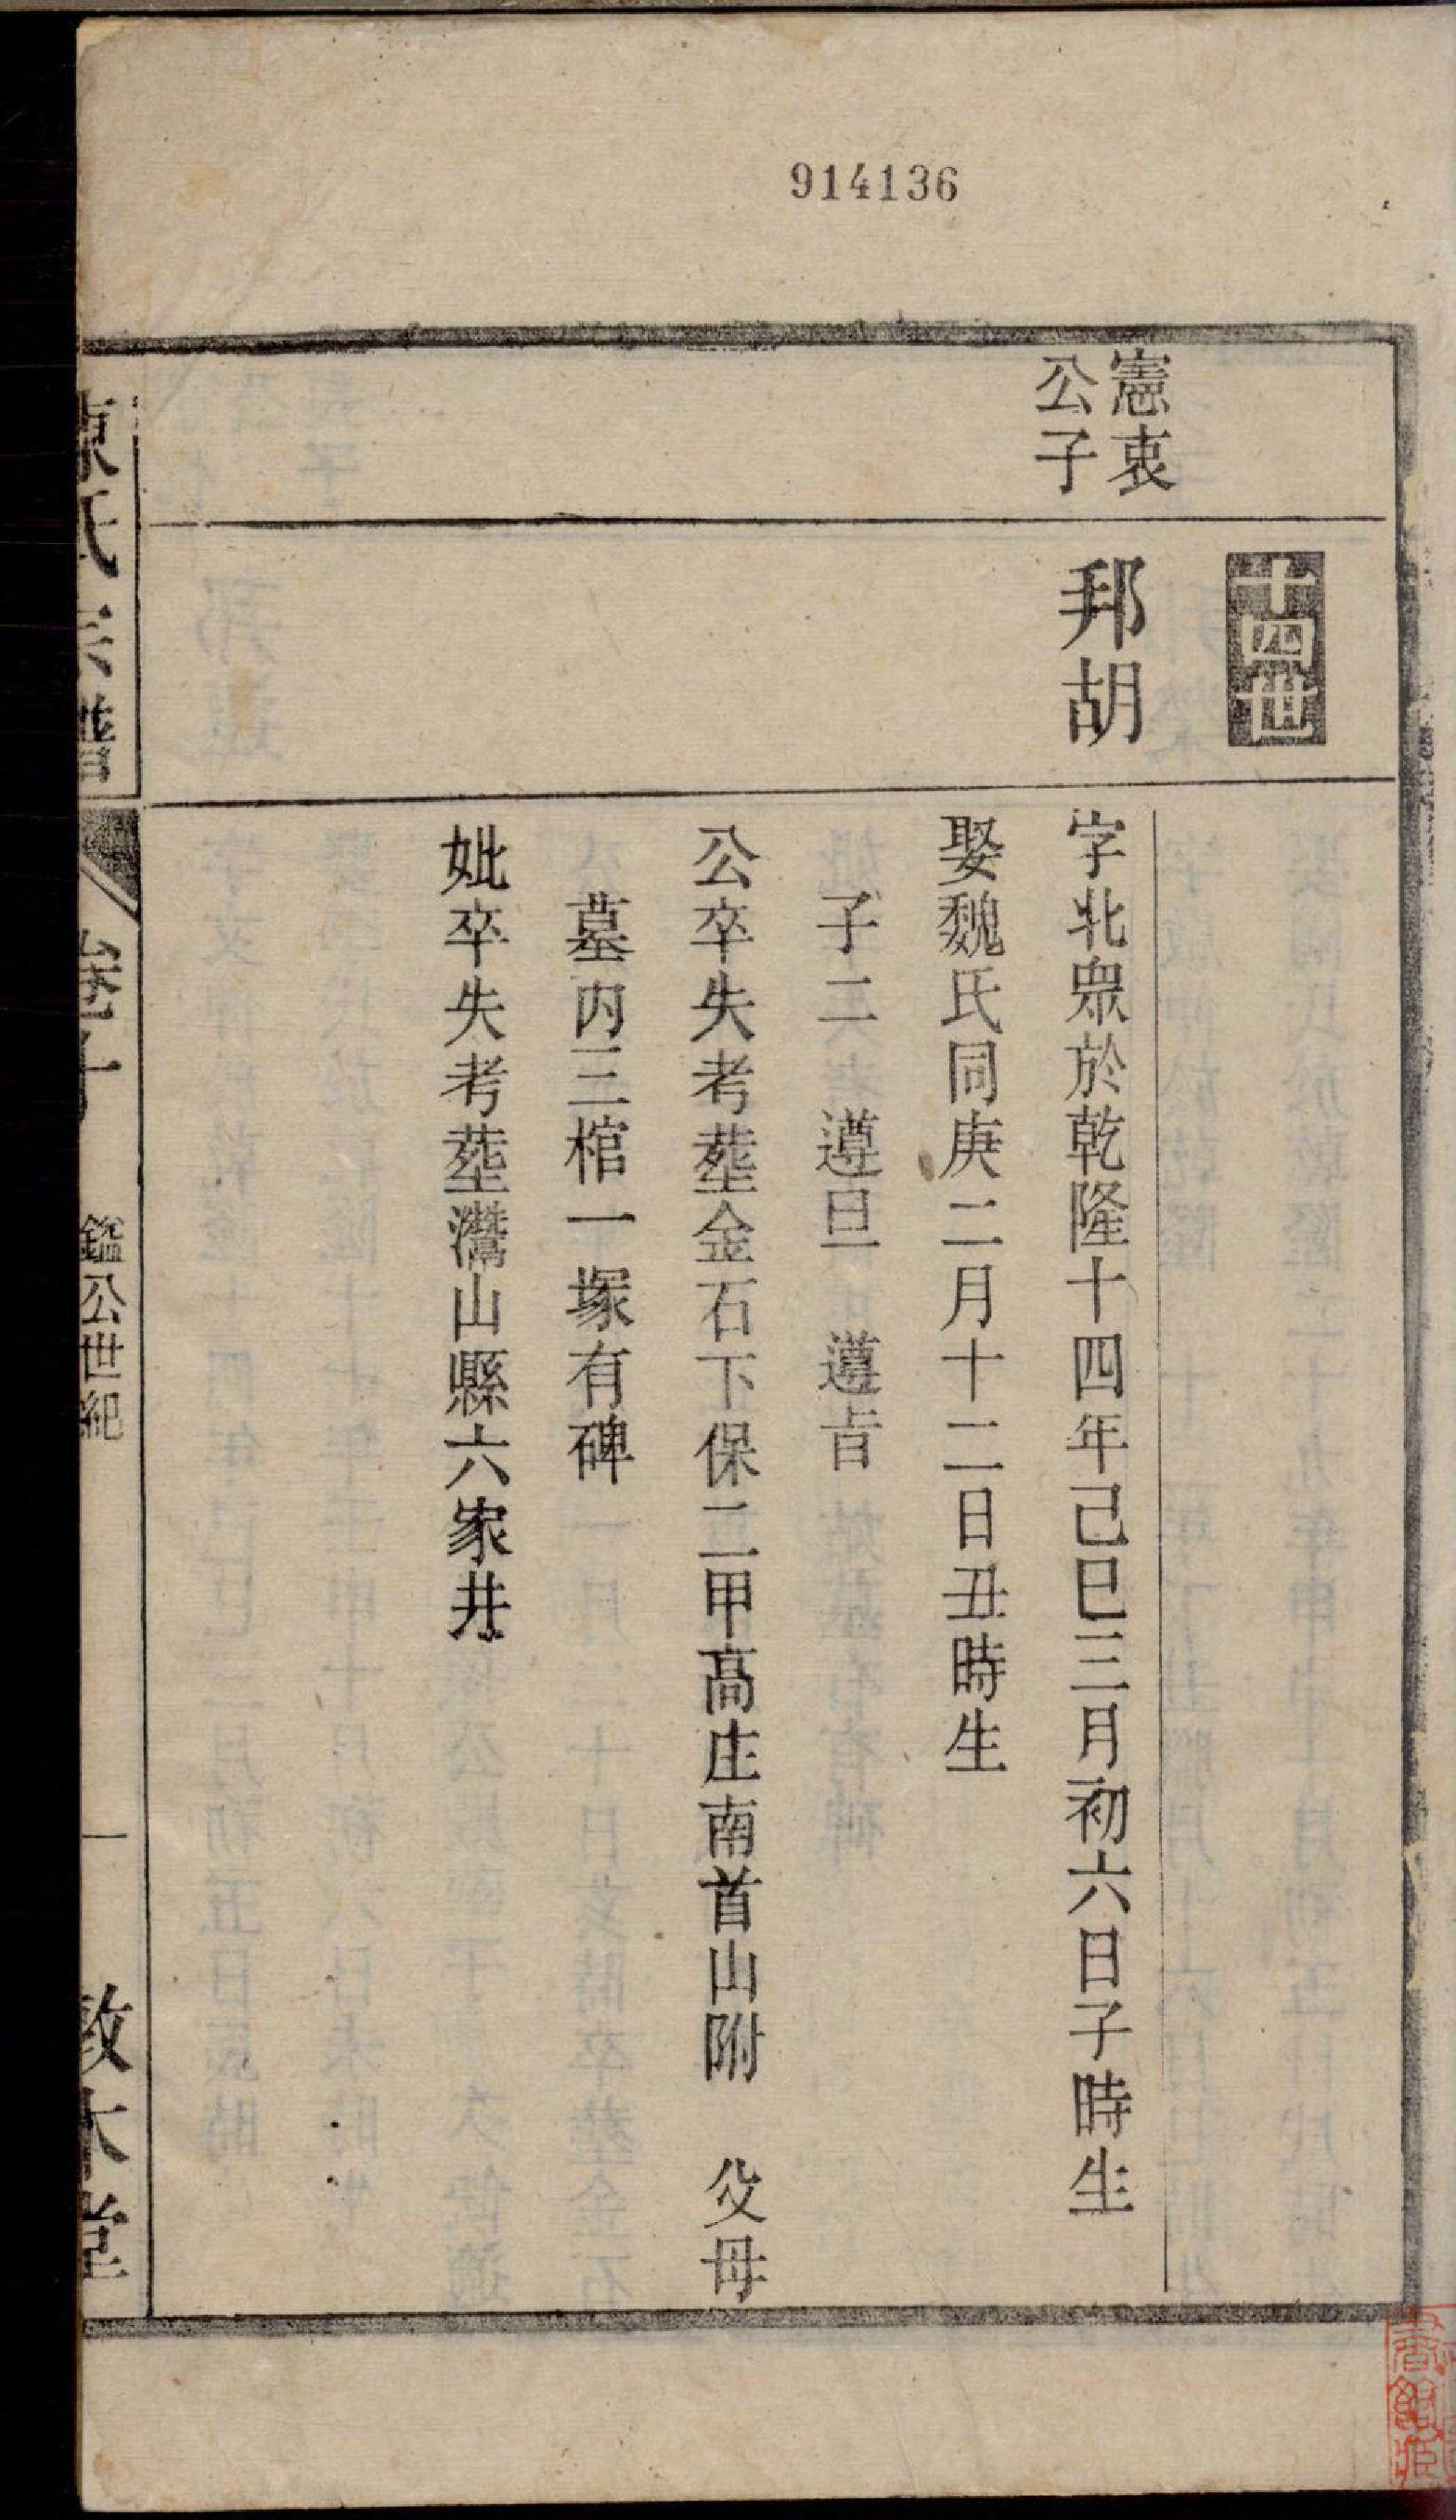 914136
十四世
憲衷
公子
邦胡
字北眾於乾隆十四年己巳三月初六日子時生
娶魏氏同庚二月十二日丑時生
子二 遵旦 遵㫖
公卒失考塟金石下保二甲高庄南首山附 父母
墓內三棺一塚有碑
妣卒失考塟灊山縣六家井
陳氏宗譜
卷十
鑑公世紀
一
敦本堂